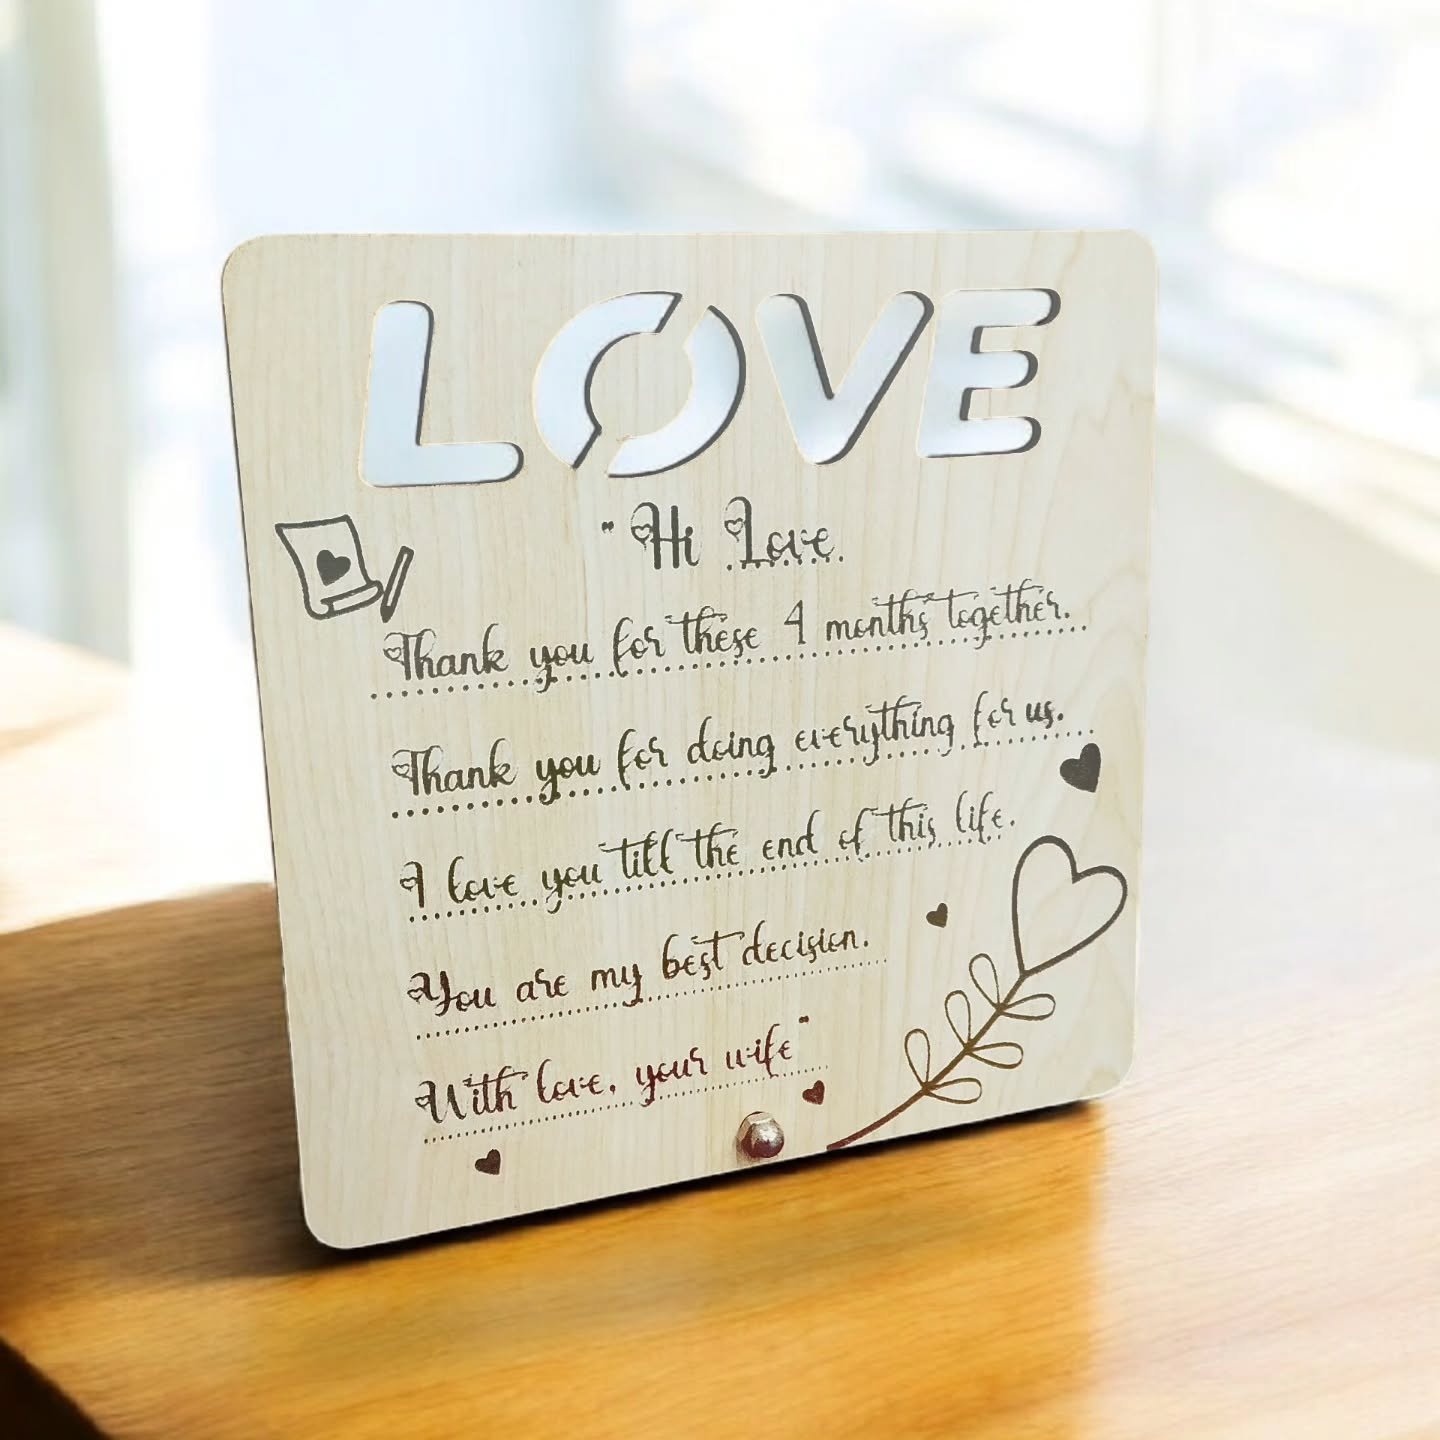 LOVE
"Hi Love.
Thank you for these 4 months together.
Thank you for doing everything for us.
I love you till the end of this life.
You are my best decision.
With love, your wife"